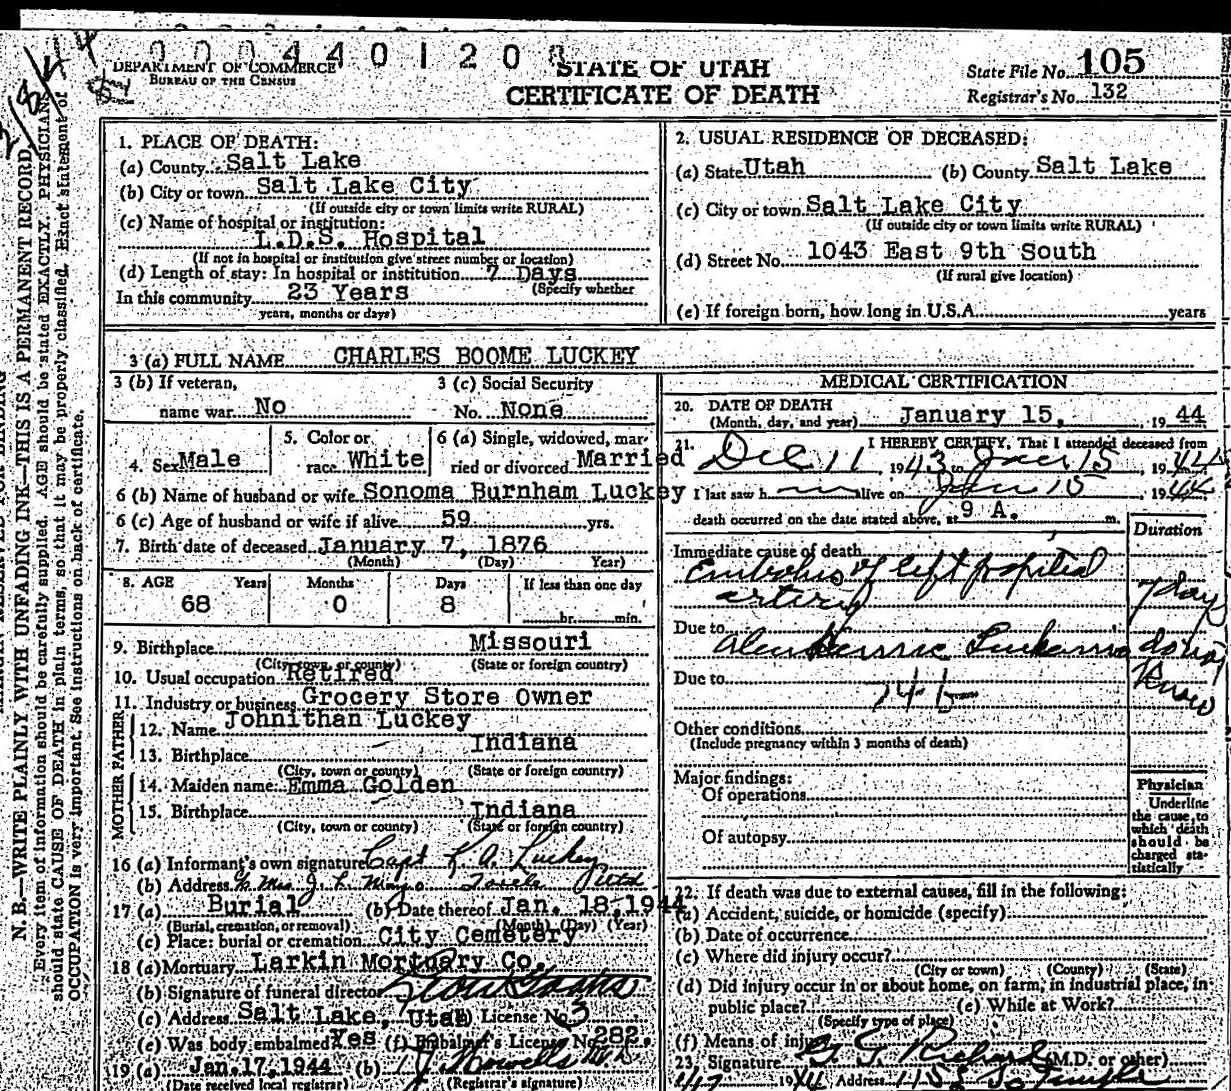 0004401208
DEPARTMENT OF COMMERCE
BUREAU OF THE CENSUS
STATE OF UTAH
CERTIFICATE OF DEATH
State File No. 105
Registrar's No. 132
N. B.—WRITE PLAINLY WITH UNFADING INK—THIS IS A PERMANENT RECORD
Every item of information should be carefully supplied. AGE should be stated EXACTLY. PHYSICIAN
should state CAUSE OF DEATH in plain terms, so that it may be properly classified. Exact statement of
OCCUPATION is very important. See instructions on back of certificate.
1. PLACE OF DEATH:
(a) County Salt Lake
(b) City or town Salt Lake City
(If outside city or town limits write RURAL)
(c) Name of hospital or institution:
L.D.S. Hospital
(If not in hospital or institution give street number or location)
(d) Length of stay: In hospital or institution 7 Days
(Specify whether
In this community 23 Years
years, months or days)
2. USUAL RESIDENCE OF DECEASED:
(a) State Utah (b) County Salt Lake
(c) City or town Salt Lake City
(If outside city or town limits write RURAL)
(d) Street No. 1043 East 9th South
(If rural give location)
(e) If foreign born, how long in U.S.A. years
3 (a) FULL NAME CHARLES BOOME LUCKEY
3 (b) If veteran, 3 (c) Social Security
name war No No. None
5. Color or 6 (a) Single, widowed, mar-
4. Sex Male race White ried or divorced Married
6 (b) Name of husband or wife Sonoma Burnham Luckey
6 (c) Age of husband or wife if alive 59 yrs.
7. Birth date of deceased January 7, 1876
(Month) (Day) Year)
8. AGE Years Months Days If less than one day
68 0 8 hr. min.
9. Birthplace Missouri
(City, town, or county) (State or foreign country)
10. Usual occupation Retired
11. Industry or business Grocery Store Owner
FATHER
12. Name Johnithan Luckey
13. Birthplace Indiana
(City, town or county) (State or foreign country)
MOTHER
14. Maiden name Emma Golden
15. Birthplace Indiana
(City, town or county) (State or foreign country)
16 (a) Informant's own signature Capt K. A. Luckey
(b) Address Mrs J. L. Utah
17 (a) Burial (b) Date thereof Jan. 18, 1944
(Burial, cremation, or removal) (Month) (Day) (Year)
(c) Place: burial or cremation City Cemetery
18 (a) Mortuary Larkin Mortuary Co.
(b) Signature of funeral director
(c) Address Salt Lake, Utah (d) License No. 3
(e) Was body embalmed Yes (f) Embalmer's License No. 282.
19 (a) Jan. 17, 1944 (b)
(Date received local registrar) (Registrar's signature)
MEDICAL CERTIFICATION
20. DATE OF DEATH
(Month, day, and year) January 15, 1944
21. I HEREBY CERTIFY, That I attended deceased from
Dec 11 1943 to Jan 15 1944
I last saw h m alive on Jan 15 1944
death occurred on the date stated above, at 9 A. m.
Duration
Immediate cause of death
Embolus of left popliteal
artery 7 day
Due to Leukemia don't
know
Due to 74 b
Other conditions
(Include pregnancy within 3 months of death)
Major findings:
Of operations
Of autopsy
Physician
Underline
the cause to
which death
should be
charged sta-
tistically
22. If death was due to external causes, fill in the following:
(a) Accident, suicide, or homicide (specify)
(b) Date of occurrence
(c) Where did injury occur?
(City or town) (County) (State)
(d) Did injury occur in or about home, on farm, in industrial place, in
public place? (e) While at Work?
(Specify type of place)
(f) Means of injury
23. Signature G. G. Richards (M.D. or other)
1944 Address 115